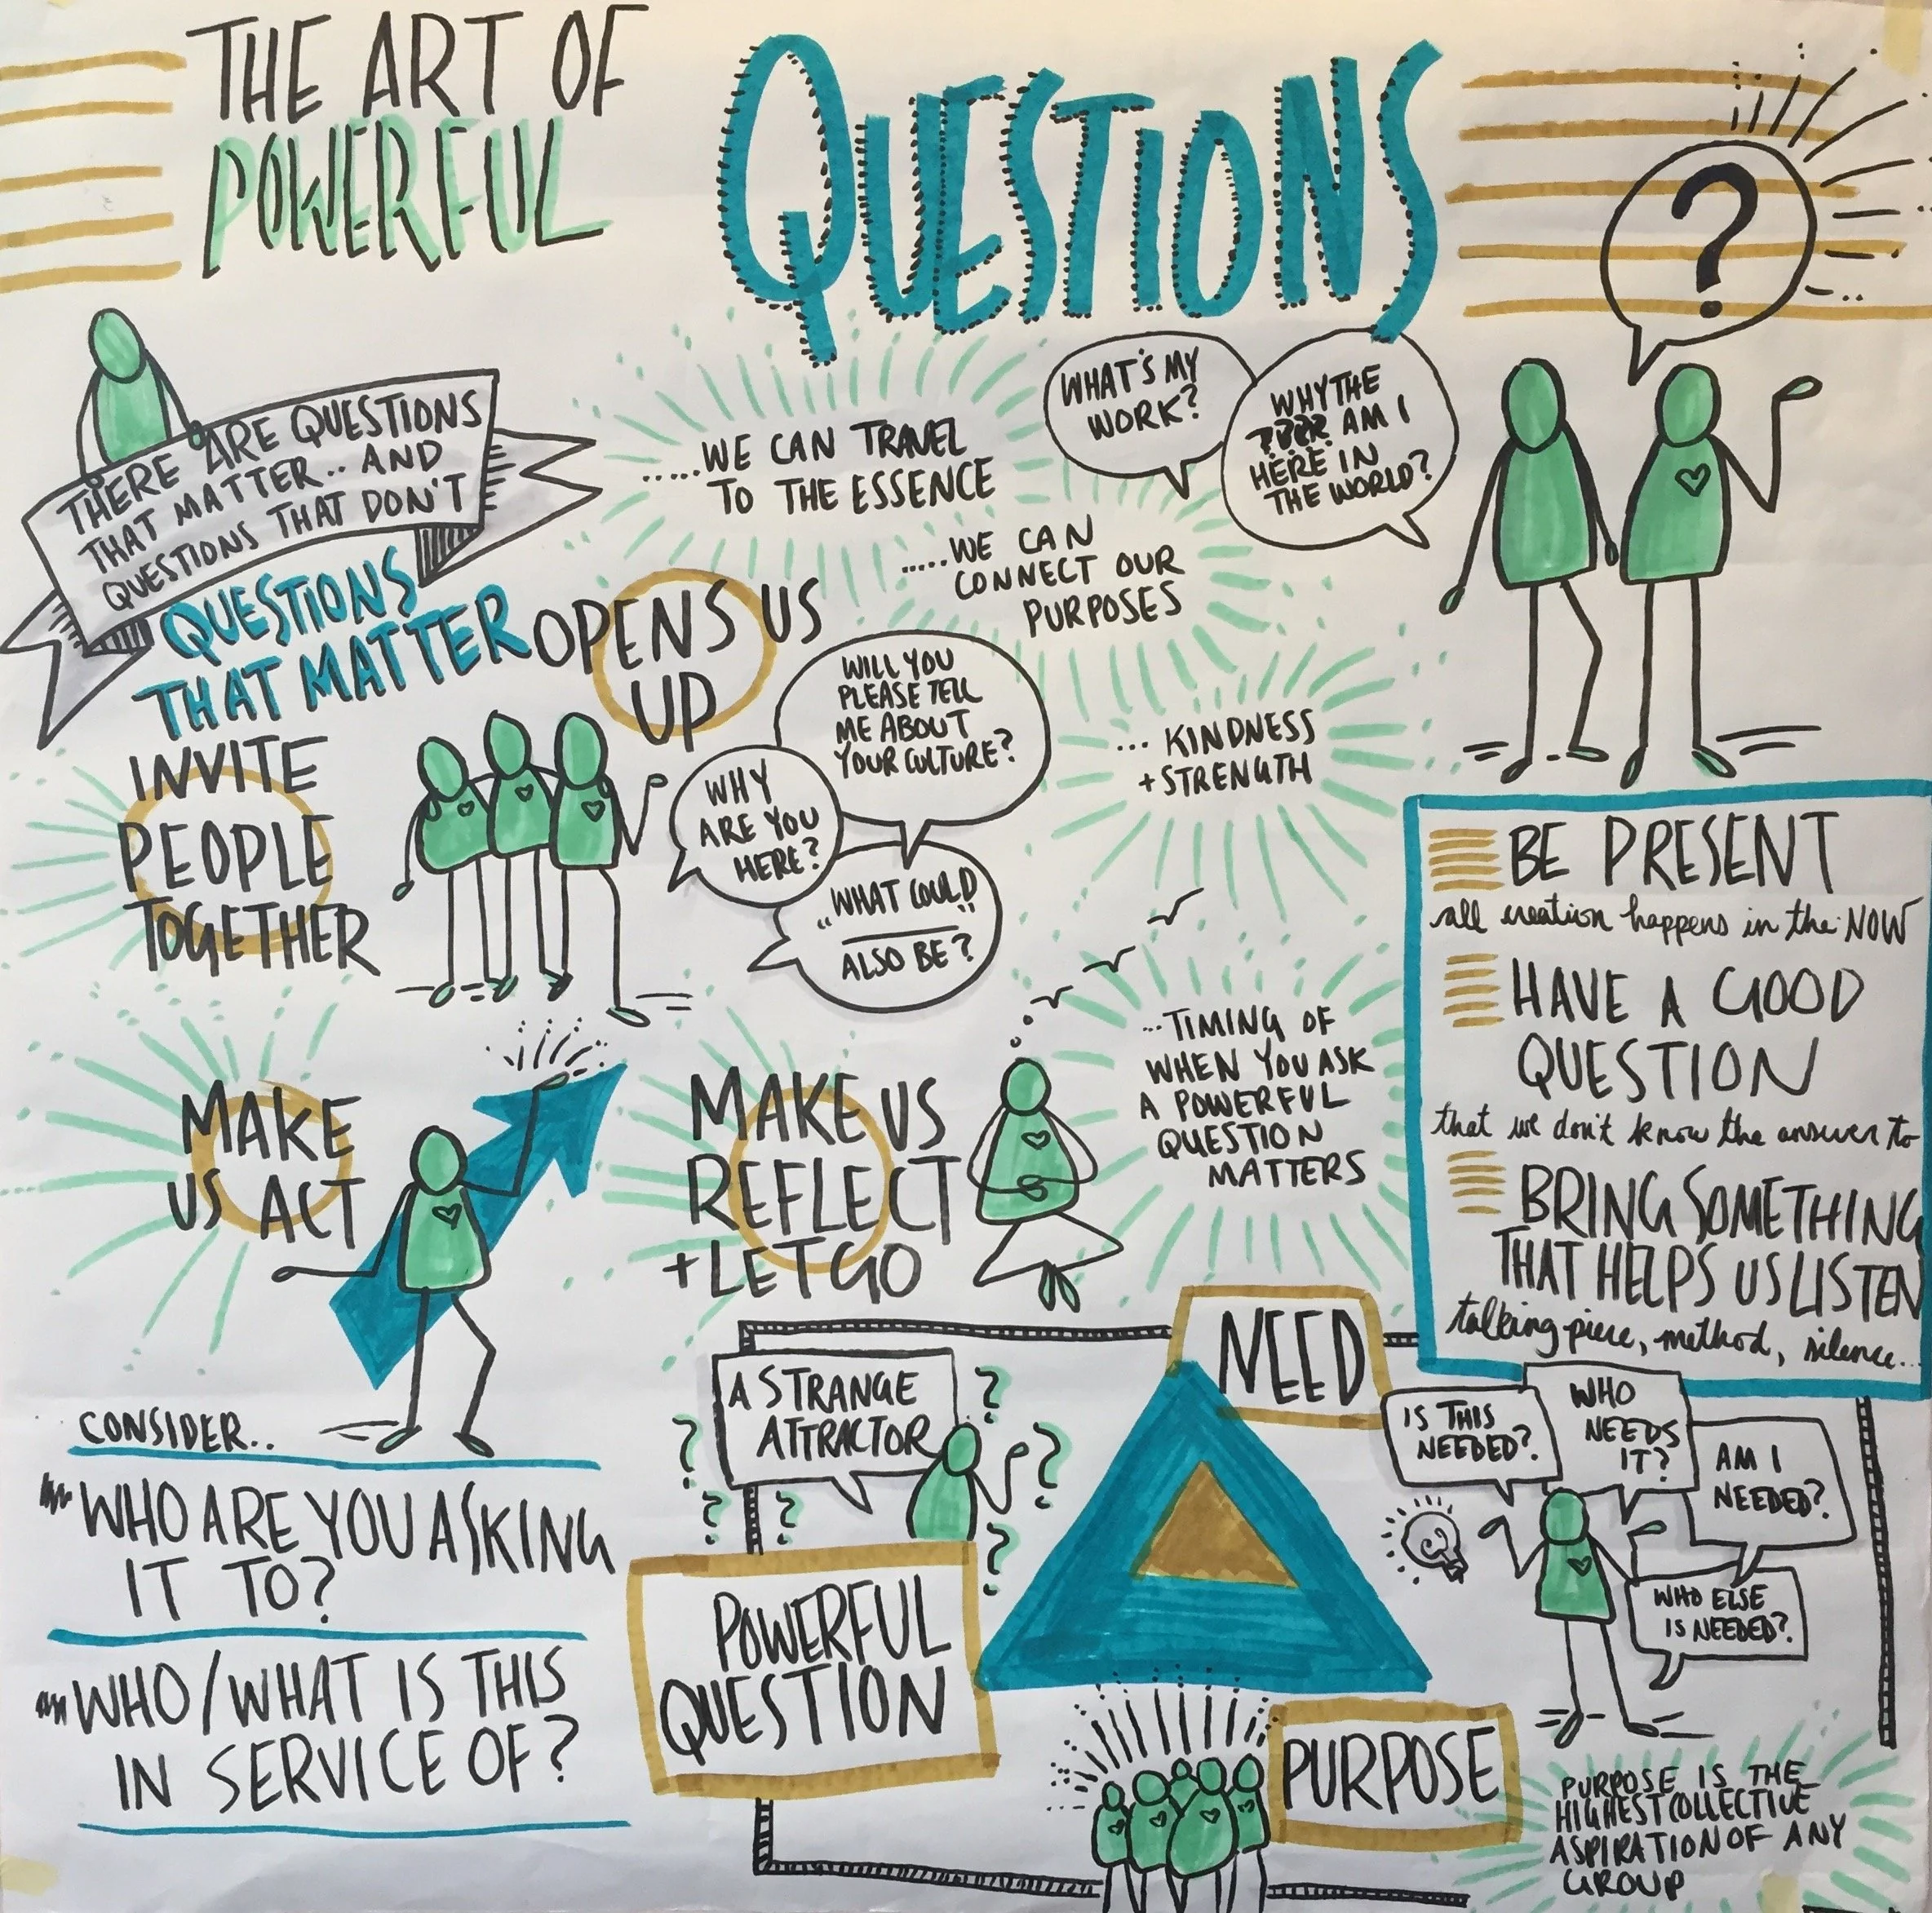 THE ART OF
POWERFUL
QUESTIONS
?
THERE ARE QUESTIONS
THAT MATTER.. AND
QUESTIONS THAT DON'T
QUESTIONS
THAT MATTER
OPENS US
UP
.....WE CAN TRAVEL
TO THE ESSENCE
WHAT'S MY
WORK?
WHY THE
???? AM I
HERE IN
THE WORLD?
.....WE CAN
CONNECT OUR
PURPOSES
INVITE
PEOPLE
TOGETHER
WILL YOU
PLEASE TELL
ME ABOUT
YOUR CULTURE?
WHY
ARE YOU
HERE?
"WHAT COULD
____"
ALSO BE?
... KINDNESS
+STRENGTH
BE PRESENT
all creation happens in the NOW
HAVE A GOOD
QUESTION
that we don't know the answer to
BRING SOMETHING
THAT HELPS US LISTEN
talking piece, method, silence...
MAKE
US ACT
MAKE US
REFLECT
+LET GO
...TIMING OF
WHEN YOU ASK
A POWERFUL
QUESTION
MATTERS
CONSIDER..
WHO ARE YOU ASKING
IT TO?
WHO/WHAT IS THIS
IN SERVICE OF?
A STRANGE
ATTRACTOR
? ? ? ? ? ?
POWERFUL
QUESTION
NEED
IS THIS
NEEDED?
WHO
NEEDS
IT?
AM I
NEEDED?
WHO ELSE
IS NEEDED?
PURPOSE
PURPOSE IS THE
HIGHEST COLLECTIVE
ASPIRATION OF ANY
GROUP